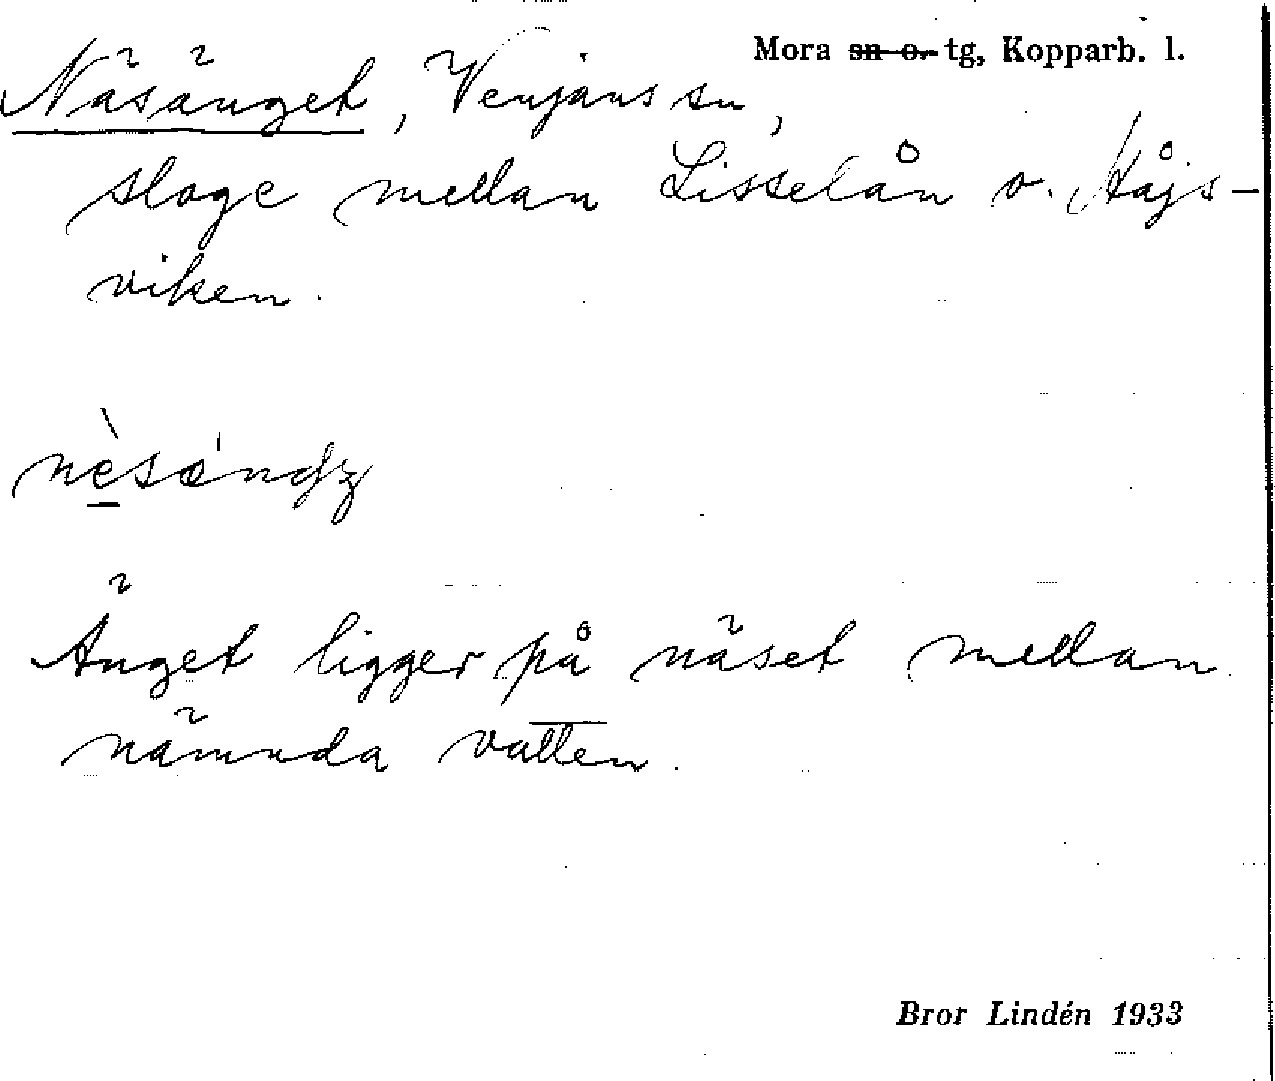 Mora sn o. tg, Kopparb. l.
Näsänget, Venjans sn,
sloge mellan Lisselån o. Håjs-
viken.
nèsændz
Änget ligger på näset mellan
nämnda vatten.
Bror Lindén 1933